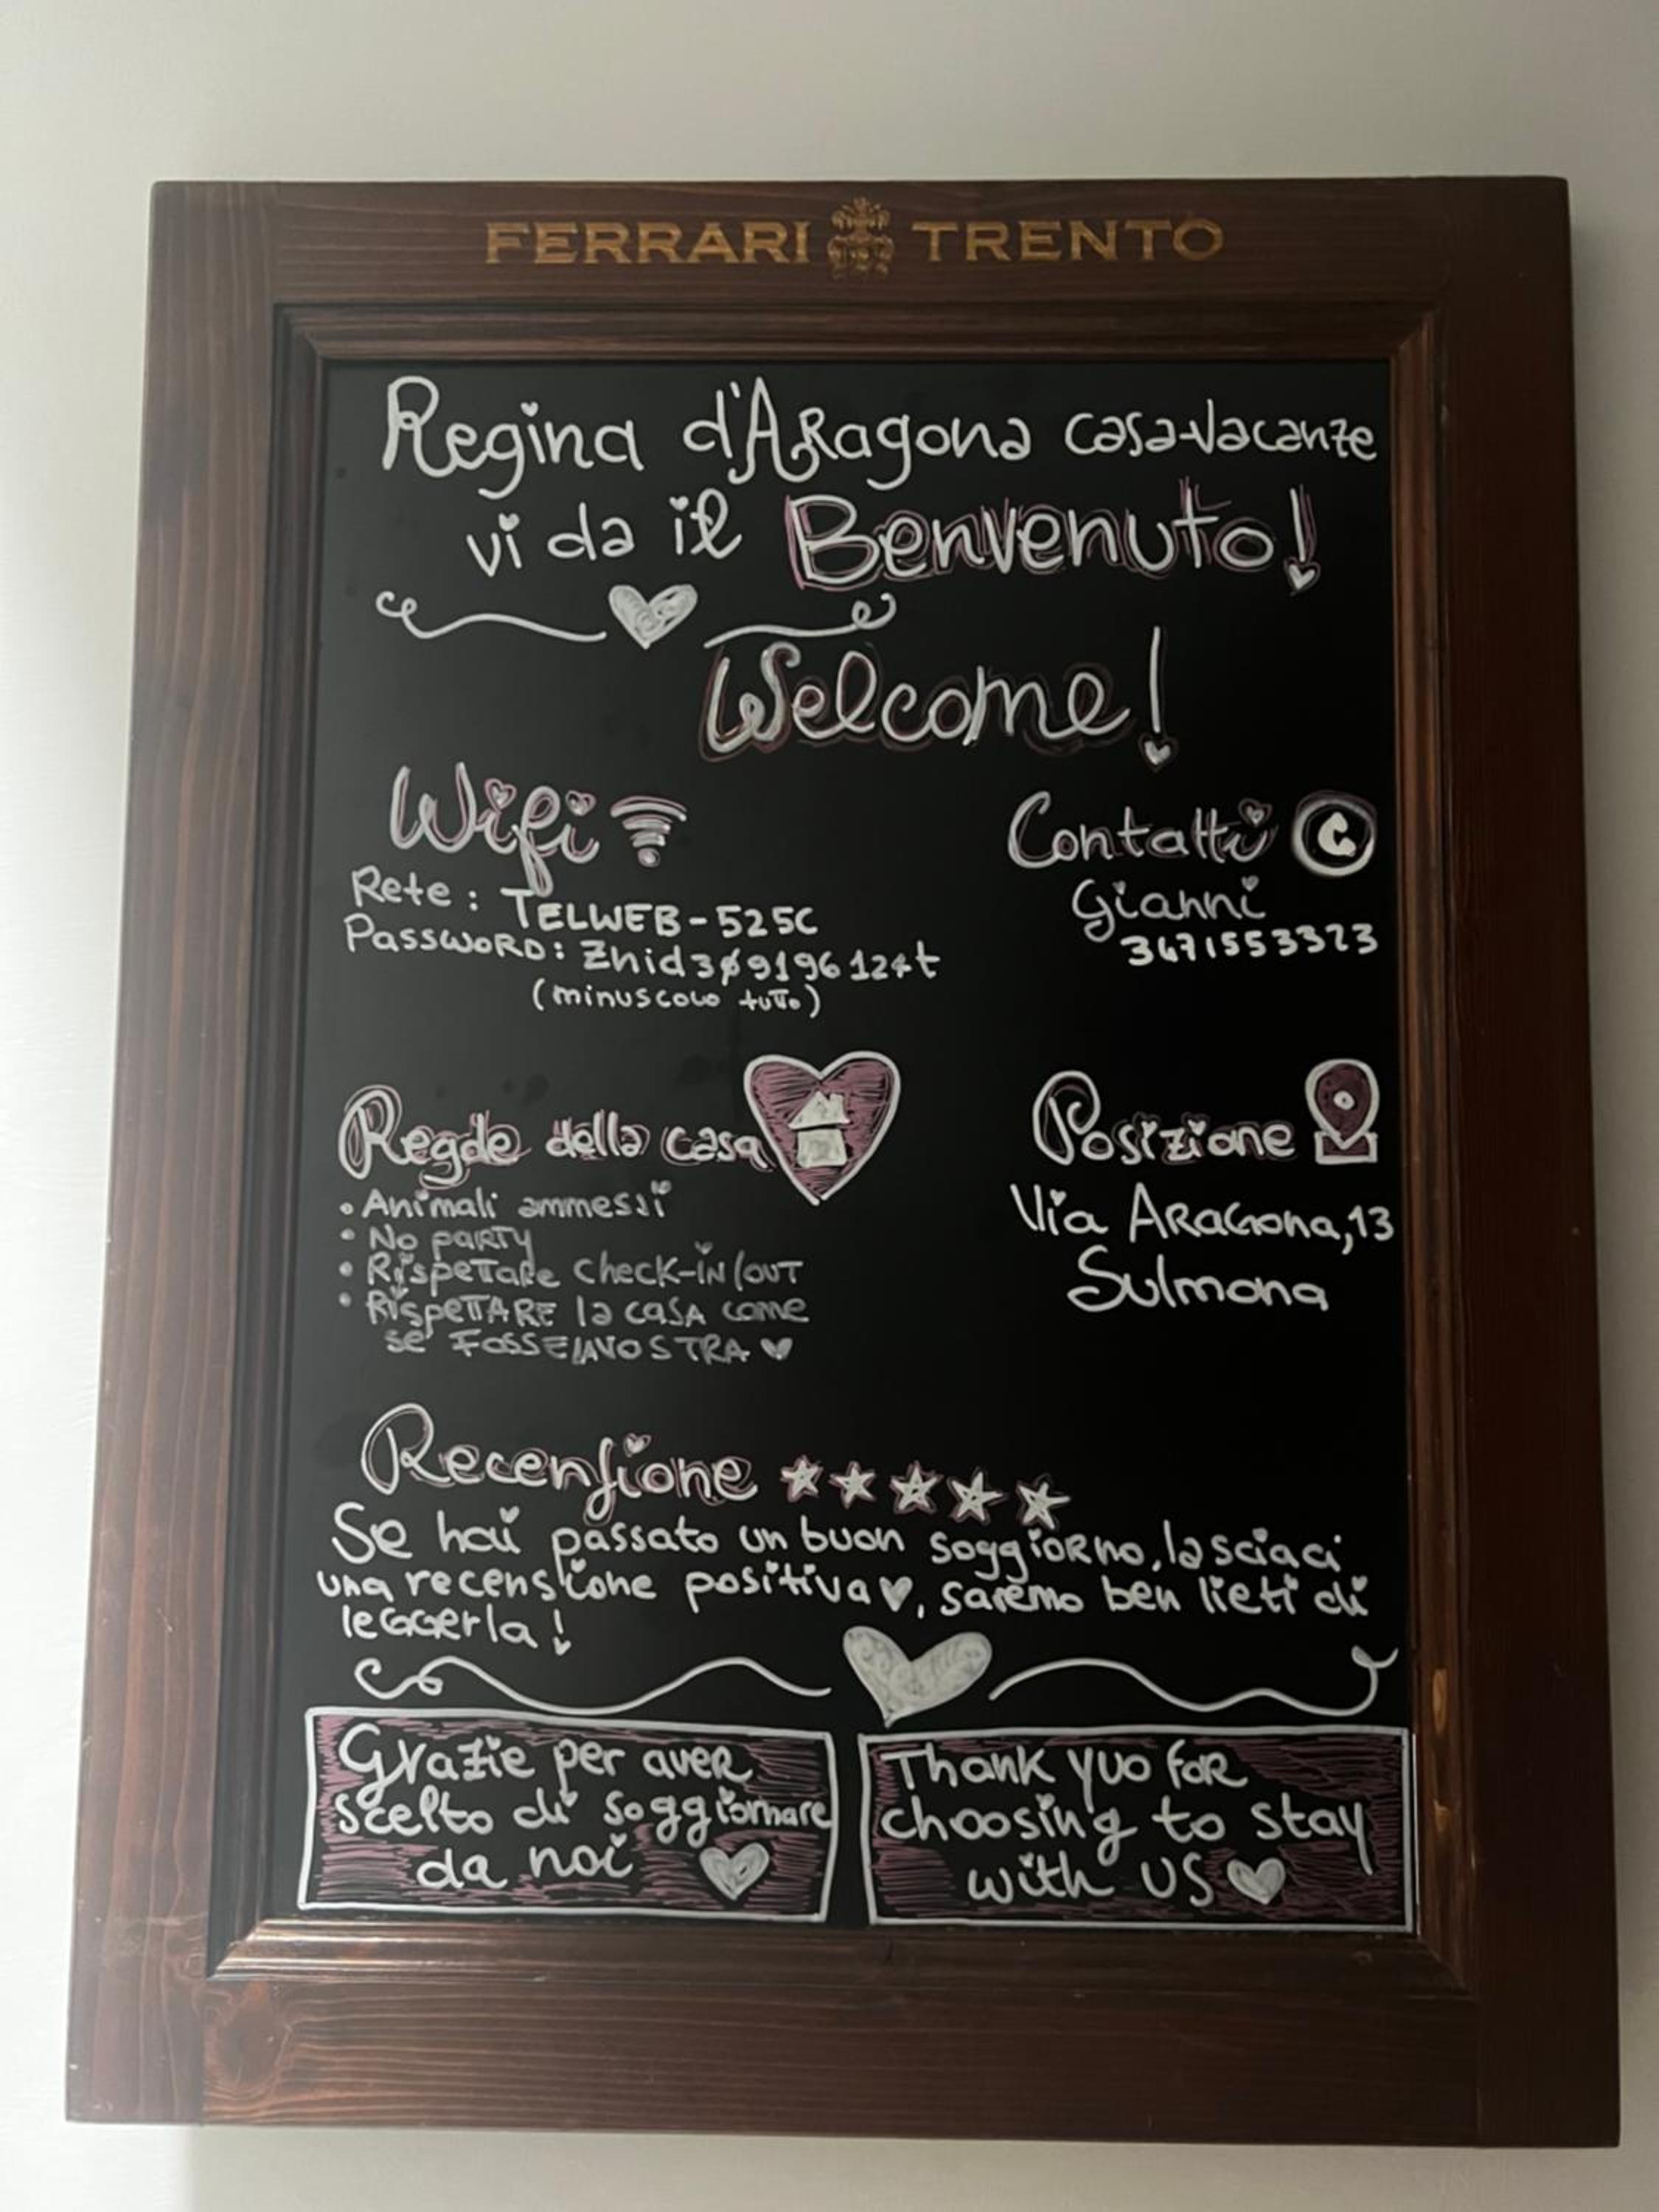 FERRARI TRENTO
Regina d'Aragona casa-vacanze
vi da il Benvenuto!
Welcome!
Wifi
Rete: TELWEB-525C
Password: Znid309196124t
(minuscolo tutto)
Contatti
Gianni
3471553323
Regole della casa
• Animali ammessi
• No party
• Rispetare check-in/out
• Rispettare la casa come
se fosse la vostra
Posizione
Via Aragona, 13
Sulmona
Recensione
Se hai passato un buon soggiorno, lasciaci
una recensione positiva, saremo ben lieti di
leggerla!
Grazie per aver
scelto di soggiornare
da noi
Thank yuo for
choosing to stay
with us